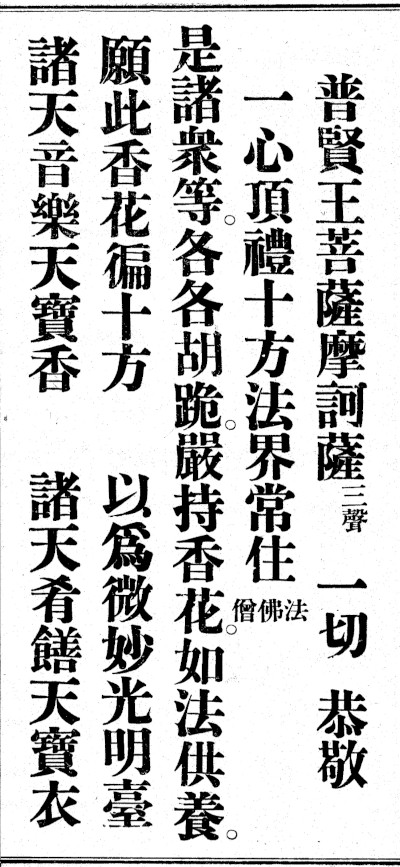 普賢王菩薩摩訶薩三聲 一切 恭敬
一心頂禮十方法界常住法佛僧
是諸衆等。各各胡跪。嚴持香花。如法供養。
願此香花徧十方 以爲微妙光明臺
諸天音樂天寶香 諸天肴饍天寶衣